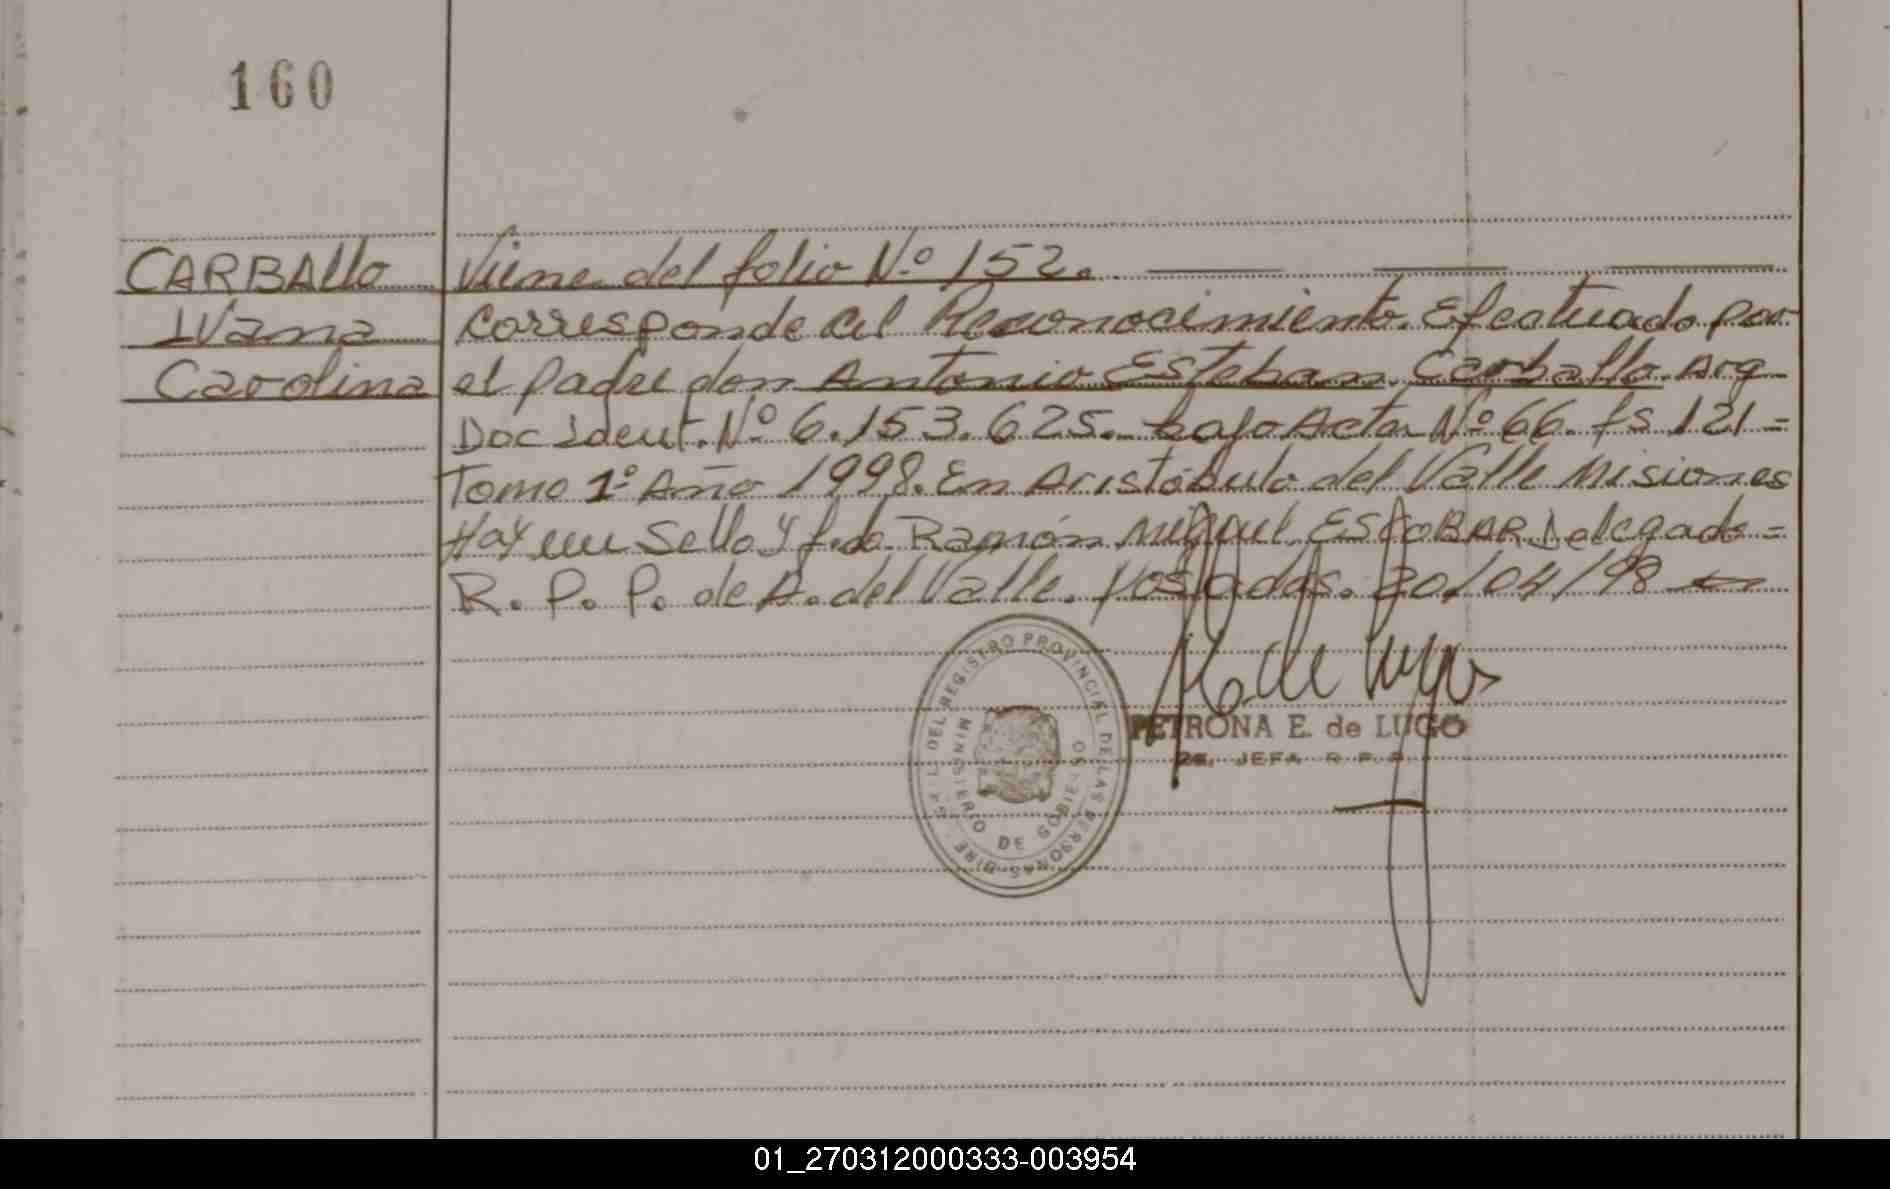 160
CARBAllo
Ivana
Carolina
Viene del folio Nº 152.
Corresponde al Reconocimiento. Efectuado por
el padre don Antonio Esteban Carballo. Arg
Doc Ident. Nº 6.153.625. bajo Acta Nº 66. fs 121 =
Tomo 1º Año 1998. En Aristóbulo del Valle Misiones
Hay un Sello y fdo. Ramón Miguel ESCOBAR Delegado =
R. P. P. de A. del Valle. Posadas. 30/04/98
DEL REGISTRO PROVINCIAL DE LAS PERSONAS
MINISTERIO DE GOBIERNO
PETRONA E. de LUGO
JEFA R. P. P.
01_270312000333-003954